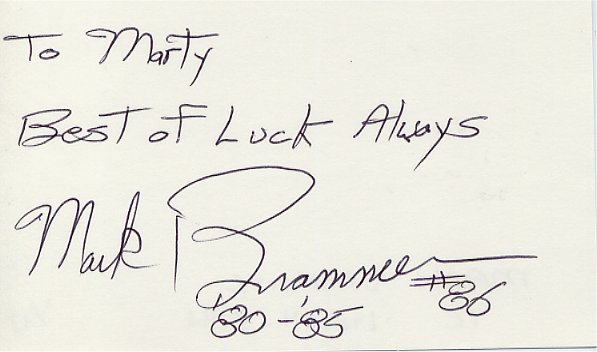 To Marty
Best of Luck Always
Mark Brammer #86
80-85